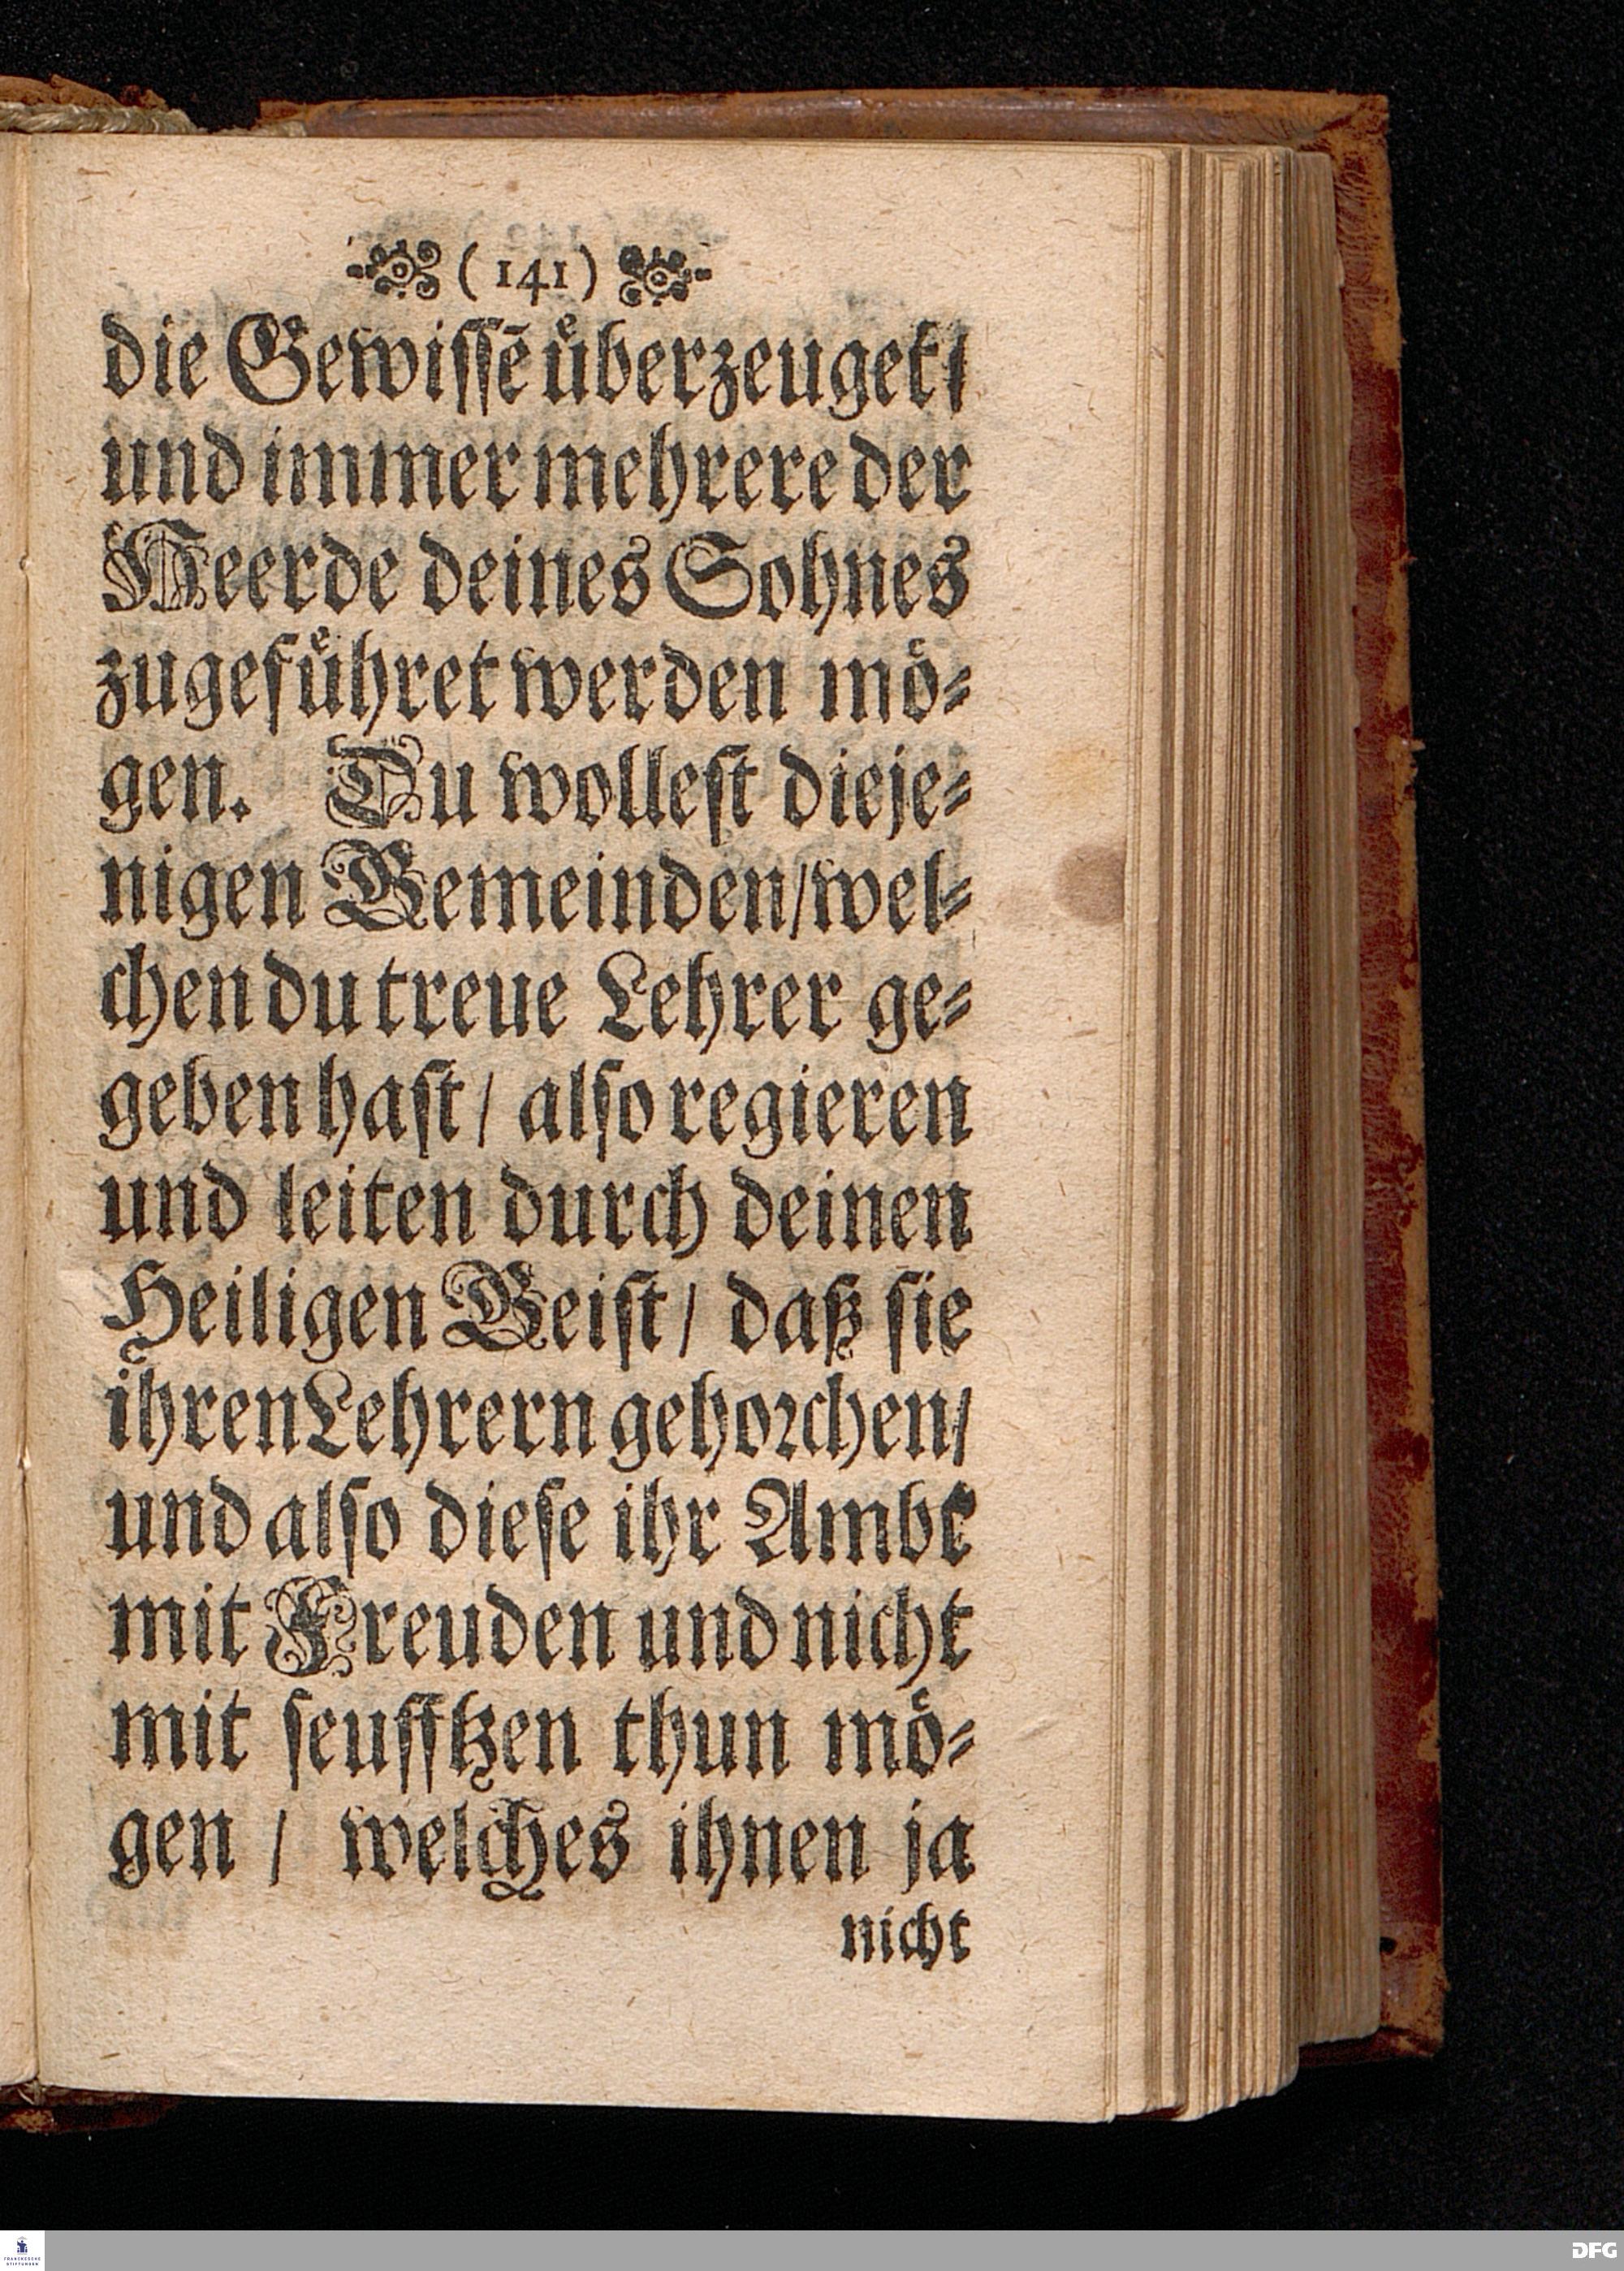 ( 141 )
die Gewissē uͤberzeuget /
und immer mehrere der
Heerde deines Sohnes
zugefuͤhret werden moͤ⸗
gen. Du wollest dieje⸗
nigen Gemeinden / wel⸗
chen du treue Lehrer ge⸗
geben hast / also regieren
und leiten durch deinen
Heiligen Geist / daß sie
ihren Lehrern gehorchen /
und also diese ihr Ambt
mit Freuden und nicht
mit seufftzen thun moͤ⸗
gen / welches ihnen ja
nicht
FRANCKESCHE STIFTUNGEN
DFG